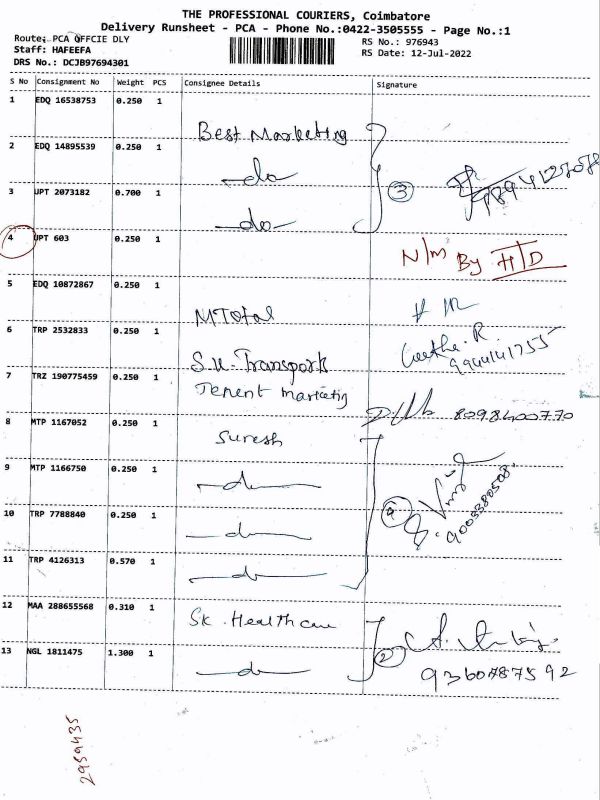 THE PROFESSIONAL COURIERS, Coimbatore
Delivery Runsheet - PCA - Phone No.:0422-3505555 - Page No.:1
Route: PCA OFFCIE DLY
RS No.: 976943
Staff: HAFEEFA
RS Date: 12-Jul-2022
DRS No.: DCJB97694301
S No Consignment No Weight PCS Consignee Details Signature
1 EDQ 16538753 0.250 1
Best Marketing
2 EDQ 14895539 0.250 1
-do-
3 JPT 2073182 0.700 1
3
-do-
4 JPT 603 0.250 1
N/m By H/D
5 EDQ 10872867 0.250 1
MTotal
6 TRP 2532833 0.250 1
S.U. Transport
9944141755
7 TRZ 190775459 0.250 1
Tement marketing
8098400770
8 MTP 1167052 0.250 1
Suresh
9 MTP 1166750 0.250 1
-do-
10 TRP 7788840 0.250 1
-do-
9003380508
11 TRP 4126313 0.570 1
-do-
12 MAA 288655568 0.310 1
SK. Healthcare
13 NGL 1811475 1.300 1
2
-do-
9360787592
2959435